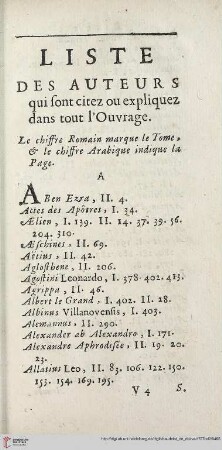 LISTE
DES AUTEURS
qui sont citez ou expliquez
dans tout l'Ouvrage.
Le chiffre Romain marque le Tome,
& le chiffre Arabique indique la
Page.
A
ABen Ezra, II. 4.
Actes des Apôtres, I. 34.
Ælien, I. 139. II. 14. 37. 39. 56.
204. 310.
Æschines, II. 69.
Aëtius, II. 42.
Aglosthene, II. 206.
Agostini Leonardo, I. 378. 402. 413.
Agrippa, II. 46.
Albert le Grand, I. 402. II. 28.
Albinus Villanovensis, I. 403.
Alemannus, II. 290.
Alexander ab Alexandro, I. 171.
Alexandre Aphrodisée, II. 19. 20.
23.
Allatius Leo, II. 83. 106. 122. 150.
153. 154. 169. 195.
V 4 S.